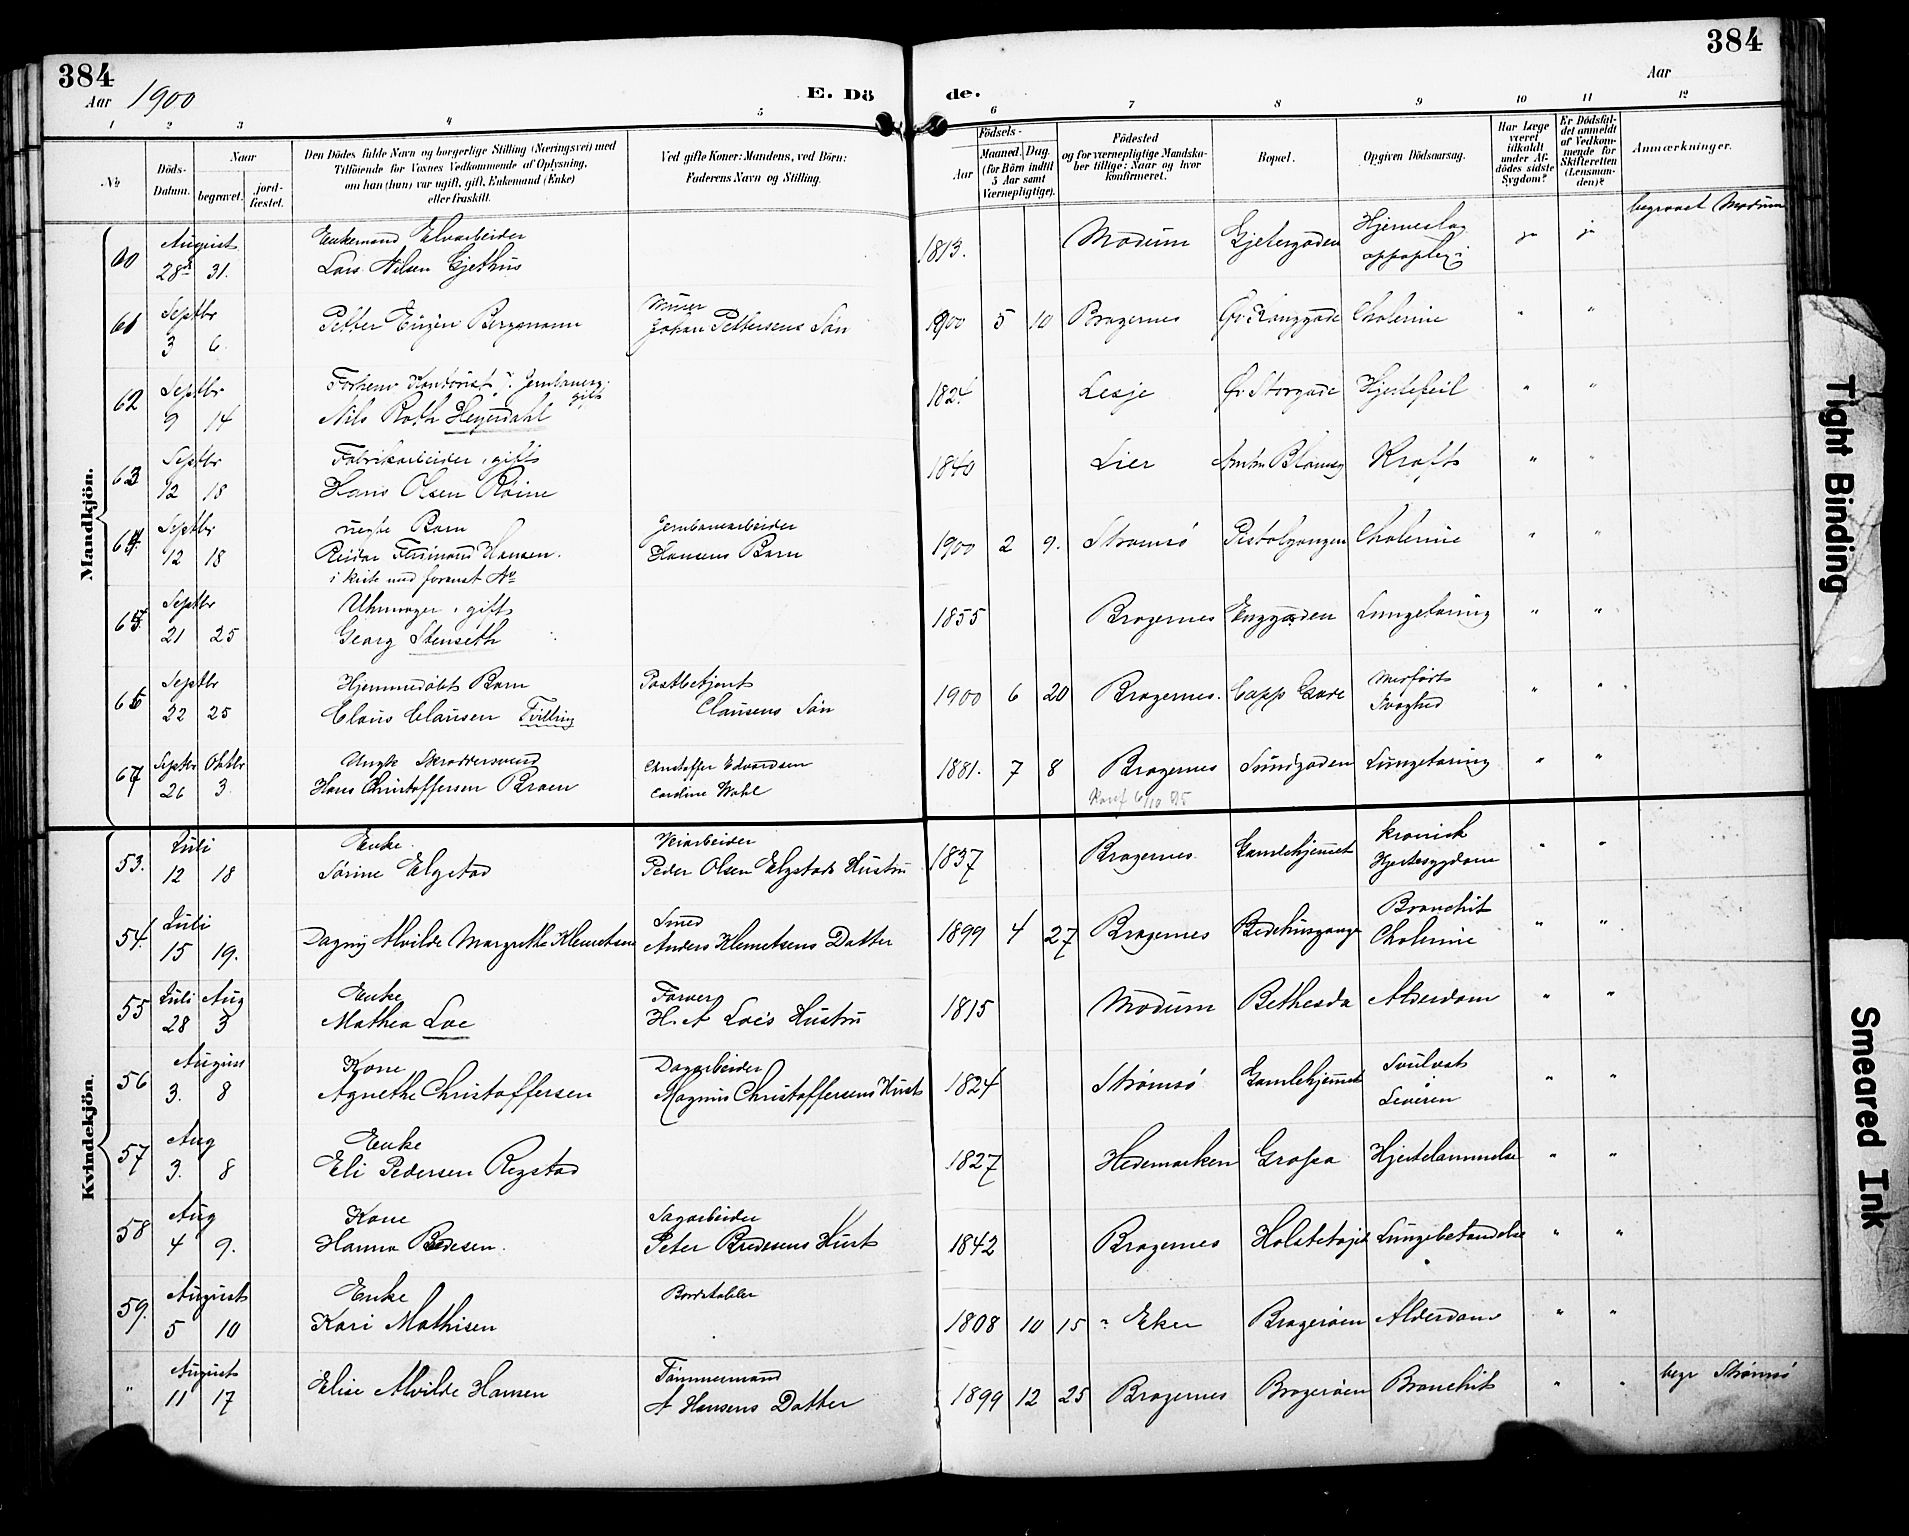 384
384
Aar 1900
E. Dö de.
Aar
1 2 3 4 5 6 7 8 9 10 11 12
No
Döds-Datum.
Naar
begravet.
jord-fæstet.
Den Dödes fulde Navn og borgerlige Stilling (Næringsvei) med
Tilföiende for Voxnes Vedkommende af Oplysning,
om han (hun) var ugift, gift, Enkemand (Enke)
eller fraskilt.
Ved gifte Koner: Mandens, ved Börn:
Faderens Navn og Stilling.
Födsels-
Aar
Maaned. Dag.
(for Börn indtil
5 Aar samt
Værnepligtige).
Födested
og for værnepligtige Mandska-
ber tillige: Naar og hvor
konfirmeret.
Bopæl.
Opgiven Dödsaarsag.
Har Læge
været
tilkaldt
under Af-
dödes sidste
Sygdom?
Er Dödsfal-
det anmeldt
af Vedkom-
mende for
Skifteretten
(Lensman-
den)?
Anmærkninger.
Mandkjön.
60 August 28 31. Enkemand Elvarbeider Lars Nilsen Gjethus 1813. Modum Gjetergaden Hjerneslag appoplexi ja ja begravet Modum
61 Septbr 3 6. Petter Eugen Bergmann Murer Johan Pettersens Søn 1900 5 10 Bragernes Øv. Langgade Cholerine " "
62 Septbr 9 14 Forhenv Kontorist v. Jernbanen, gift Nils Roth Heyerdahl 1824 Lesje Øv Storgade Hjertefeil " "
63 Septbr 12 18 Fabrikarbeider, gift Hans Olsen Røine 1840 Lier Kræft " "
64 Septbr 12 18 uægte Barn Reidar Ferdinand Hansen. i kiste med foranst. No Jernbanearbeider Hansens Barn 1900 2 9. Strømsø Pistolgangen Cholerine " "
65 Septbr 21 25 Uhrmager, gift Georg Stenseth 1855 Bragernes Enggaden Lungetæring " "
66 Septbr 22 25 Hjemmedøbt Barn Claus Clausen Tvilling Postbetjent Clausens Søn 1900 6 20 Bragernes. Capp Gade Medfødt Svaghed " "
67 Septbr 26 Oktbr 3. Ungk Skræddersvend Hans Christoffersen Braen Christoffer Edvardsen Cardine Wahl 1881. 7 8 Bragernes Konf 6/10 95 Sundgaden Lungetæring " "
Kvindekjön.
53. Juli 12 18 Enke. Sørine Elgstad Veiarbeider Peder Olsen Elgstads Hustru 1837 Bragernes Gamlehjemmet kronisk Hjertesygdom " "
54. Juli 15 19. Dagny Alvilde Margrethe Klemetsen Smed Anders Klemetsens Datter 1899 4 27 Bragernes Bedehusgange Bronchit Cholerine " "
55 Juli 28 Aug 3 Enke Mathea Loe Farver H. A Loes Hustru 1815 Modum Bethesda Alderdom " "
56 August 3. 8 Kone Agnethe Christoffersen Dagarbeider Magnus Christoffersens Hust 1824 Strømsø Gamlehjemmet Svulst Leveren " "
57 Aug 3. 8 Enke Eli Pedersen Regstad 1827 Hedemarken Hjertelammelse " "
58 Aug 4 9. Kone Hanna Bredesen. Sagarbeider Peter Bredesens Hust 1842 Bragernes Lungebetændelse " "
59. August 5 10 Enke Kari Mathisen Bordstabler 1808 10 15 Eker Bragerøen Alderdom " "
" August 11 17 Elise Alvilde Hansen Tømmermand A Hansens Datter 1899 12 25 Bragernes Bragerøen Bronchit " " begr Strømsø
Tight Binding
Smeared Ink